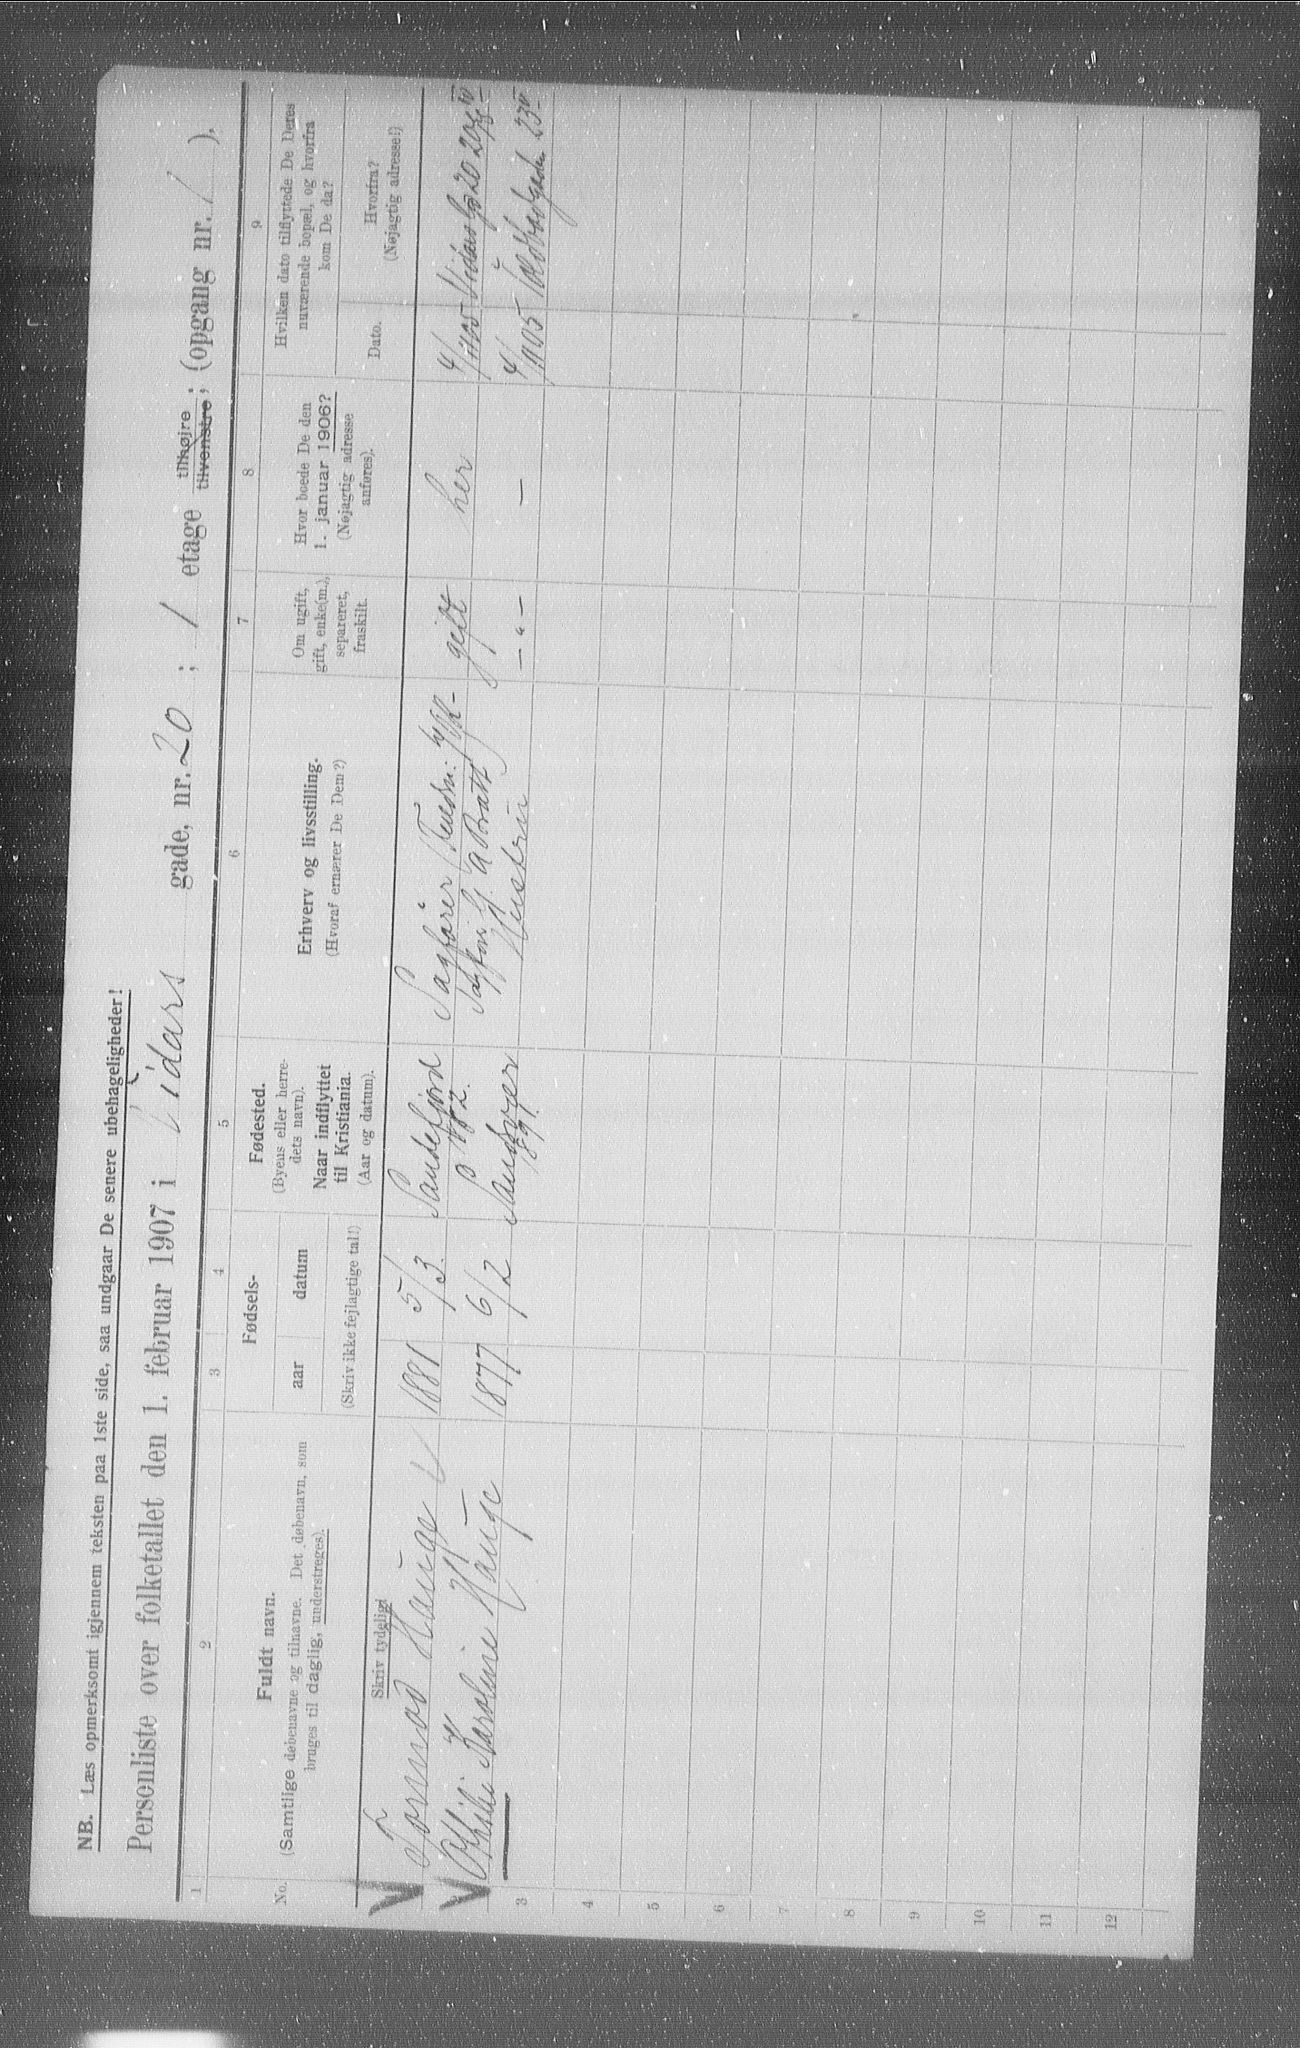 NB. Læs opmerksomt igjennem teksten paa 1ste side, saa undgaar De senere ubehageligheder!
Personliste over folketallet den 1. februar 1907 i Vidars gade, nr. 20 ; 1 etage tilhøjre tilvenstre ; (opgang nr. 1 ).
1 2 3 4 5 6 7 8 9
No.
Fuldt navn.
(Samtlige døbenavne og tilnavne. Det døbenavn, som
bruges til daglig, understreges).
Fødsels-
aar datum
(Skriv ikke fejlagtige tal!)
Fødested.
(Byens eller herre-
dets navn).
Naar indflyttet
til Kristiania.
(Aar og datum).
Erhverv og livsstilling.
(Hvoraf ernærer De Dem?)
Om ugift,
gift, enke(m.),
separeret,
fraskilt.
Hvor boede De den
1. januar 1906?
(Nøjagtig adresse
anføres).
Hvilken dato tilflyttede De Deres
nuværende bopæl, og hvorfra
kom De da?
Dato.
Hvorfra?
(Nøjagtig adresse!)
Skriv tydeligt
Tormod Hauge 1881 5/3 Sandefjord Sagfører gift her
Karoline Hauge 1877 6/2 Sandsvær Hustru – " – –
1891.
3
4
5
6
7
8
9
10
11
12